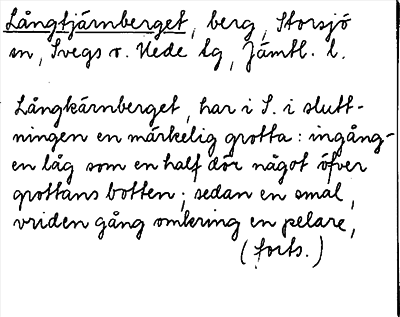 Långtjärnberget, berg, Storsjö
sn, Svegs o. Hede lg, Jämtl. l.
Långkärnberget, har i S. i slutt-
ningen en märkelig grotta: ingång-
en låg som en half dör något öfver
grottans botten; sedan en smal,
vriden gång omkring en pelare,
(forts.)